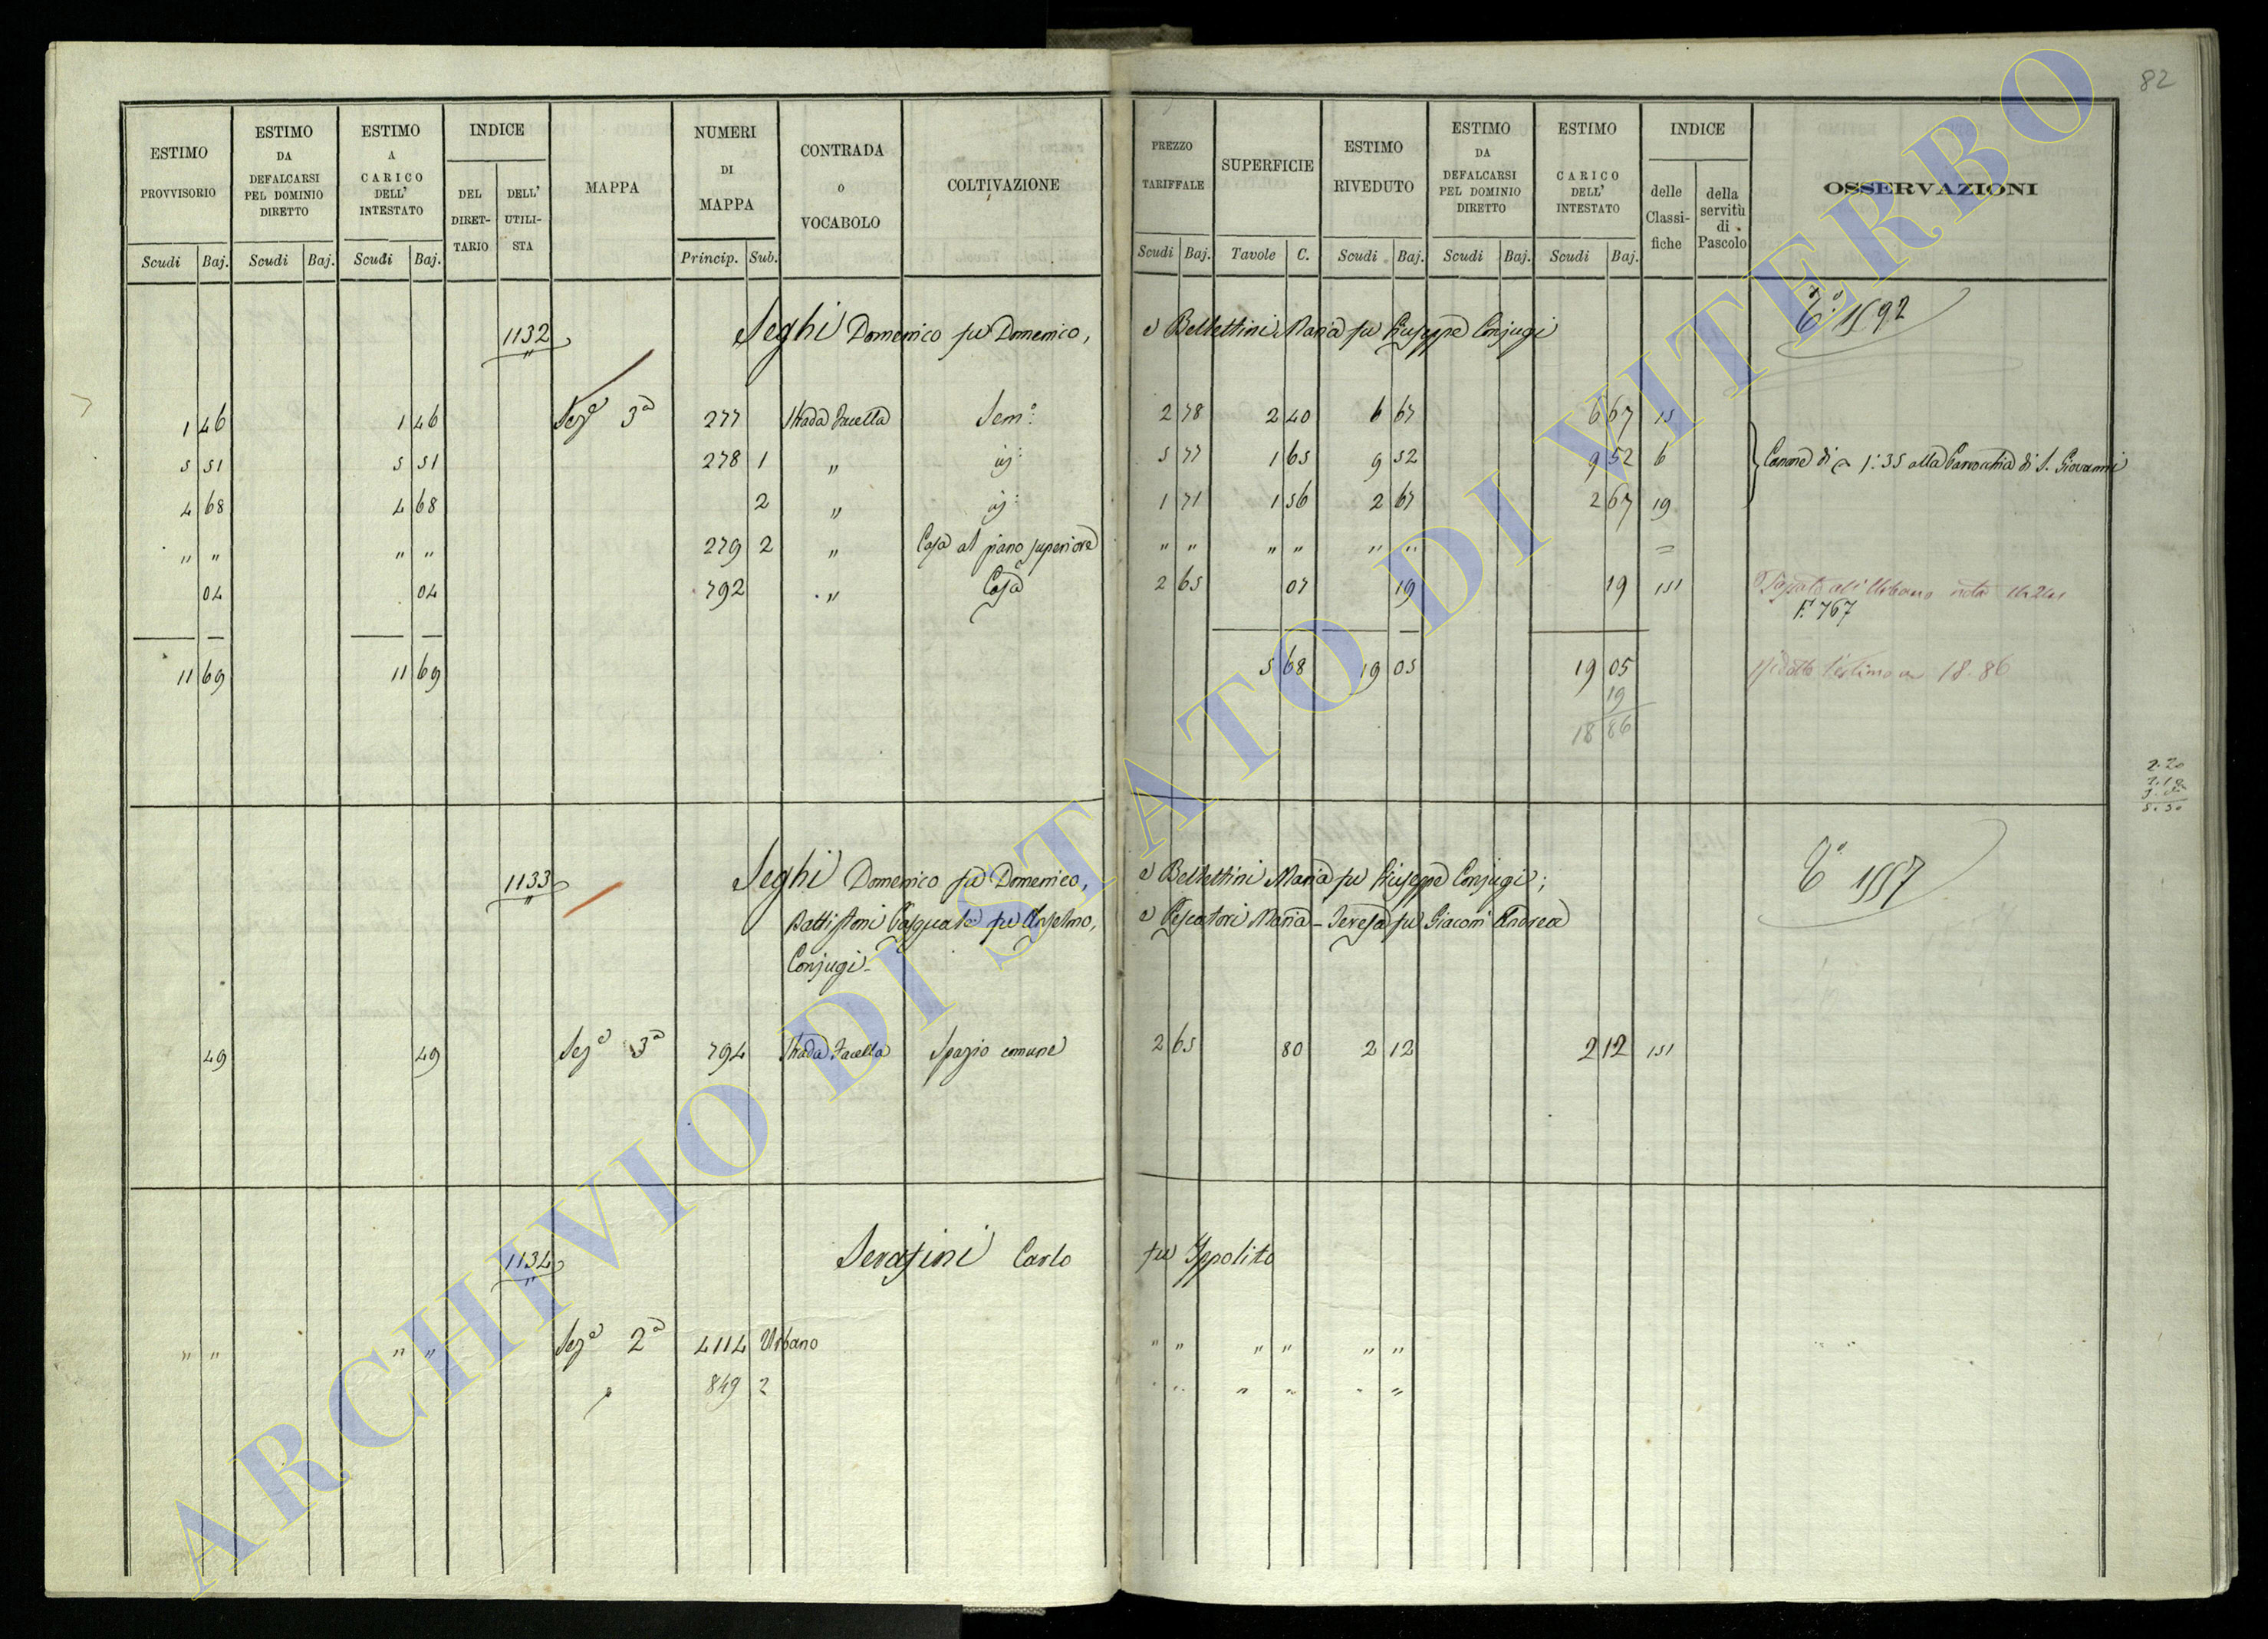 82
ESTIMO PROVVISORIO Scudi Baj.
ESTIMO DA DEFALCARSI PEL DOMINIO DIRETTO Scudi Baj.
ESTIMO A CARICO DELL' INTESTATO Scudi Baj.
INDICE DEL DIRET-TARIO DELL' UTILI-STA
MAPPA
NUMERI DI MAPPA Princip. Sub.
CONTRADA O VOCABOLO
COLTIVAZIONE
PREZZO TARIFFALE Scudi Baj.
SUPERFICIE Tavole C.
ESTIMO RIVEDUTO Scudi Baj.
ESTIMO DA DEFALCARSI PEL DOMINIO DIRETTO Scudi Baj.
ESTIMO A CARICO DELL' INTESTATO Scudi Baj.
INDICE delle Classi-fiche della servitù di Pascolo
OSSERVAZIONI
1132 Seghi Domenico fu Domenico, e Belletini Maria fu Giuseppe Conjugi 1592
1 46 1 46 Sez.e 3a 277 Strada Facella Sem.o 2 78 2 40 6 67 6 67 15
5 51 5 51 278 1 " id: 5 77 1 65 9 52 9 52 6 Canone di 1:35 alla Parrocchia di S. Giovanni
4 68 4 68 2 " id: 1 71 1 56 2 67 2 67 19
" " " " 279 2 " Casa al piano superiore " " " " " " =
04 04 792 " Casa 2 65 07 19 19 151 Passato all'Urbano
F. 767
11 69 11 69 5 68 19 05 19 05 Ridotto l'estimo a 18.86
19
18 86
2.20
8.30
1133 Seghi Domenico fu Domenico, e Belletini Maria fu Giuseppe Conjugi; 1557
Battistoni Pasquale fu Anselmo, e Pescatori Maria-Teresa fu Giacom'Andrea
Conjugi-
49 49 Sez.e 3a 794 Strada Facella Spazio comune 2 65 80 2 12 2 12 151
1134 Serafini Carlo fu Ippolito
" " " " Sez.e 2a 4114 Urbano " " " " " "
" 849 2 " " " " " "
ARCHIVIO DI STATO DI VITERBO